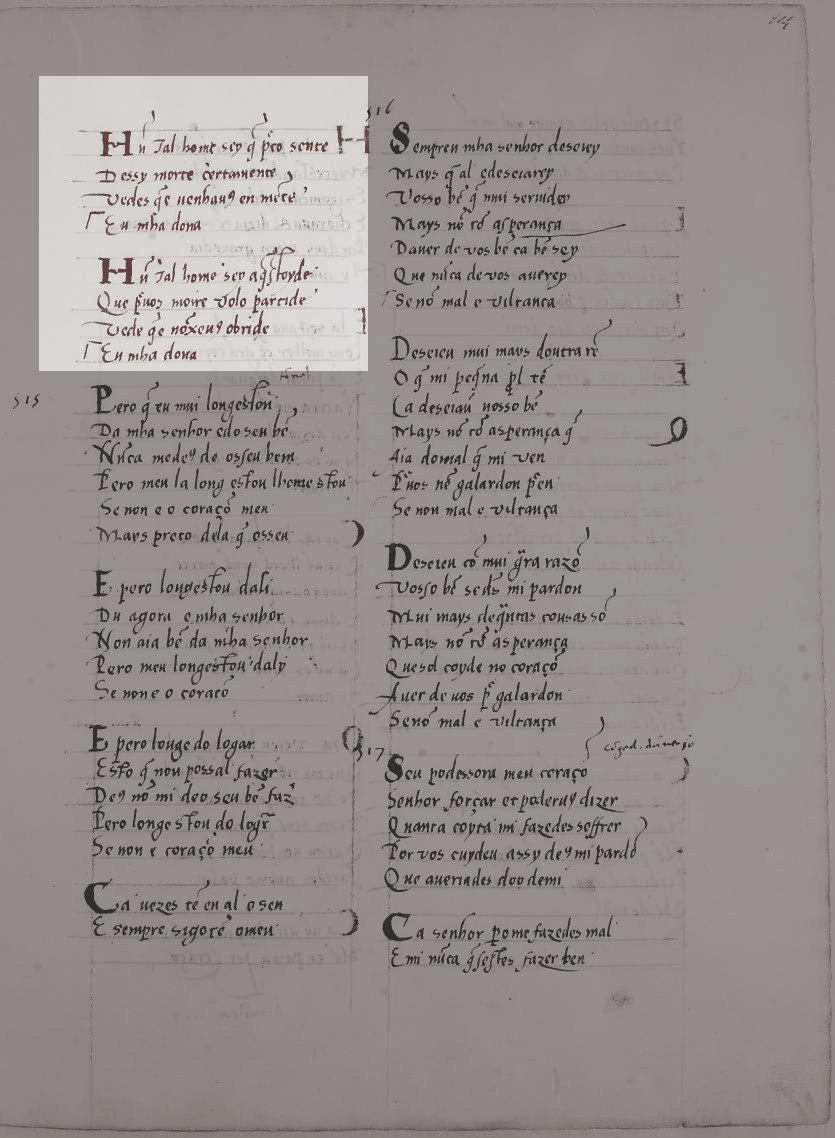 Hũ Tal home sey q̃ p̃to sente
De ssy morte çertamente
Vedes q̃e venhau9 en mẽte
Eu mha dona
Hũ Tal home sey aq̃stoyde
Que p̃uos moire uolo partide
Vede q̃e nõxeu9 obride
Eu mha dona
315
tornel
Pero q̃ eu mui longestou
Da mha senhor e do seu bẽ
Nũca mede9 de osseu bem
Pero meu la long estou lhome stou
Se non e o coraçõ meu
Mays preto dela q̃ osseu
E pero longestou dali
Du agora e mha senhor
Non aia bẽ da mha senhor
Pero meu longestou daly
Se non e o coraçõ
E pero longe do logar
Esto q̃ non possal fazer
De9 nõ mi deo seu bẽ faz
Pero longe stou do logr
Se non e coraçõ meu
Ca uezes tẽ en al o sen
E sempre sigo tẽ o meu
714
316
Sempreu mha senhor deseiey
Mays q̃ al e deseiarey
Vosso bẽ q̃ mui seruido
Mays nõ cõ asperança
Dauer de vos bẽ ca bẽ sey
Que nũca de vos auerey
Se nõ mal e viltança
Deseieu mui mays doutra rẽ
O q̃ mi peq̃na p̃l tẽ
Ca deseiau uosso bẽ
Mays nõ cõ asperança q̃
Aia do mal q̃ mi ven
P̃uos nẽ galardon p̃en
Se non mal e viltança
Deseieu cõ mui g̃ra razõ
Vosso bẽ se ds̃ mi pardon
Mui mays de q̃ntas cousas sõ
Mays nõ cõ asperança
Que sol coyde no coraçõ
Auer de uos p̃ galardon
Se nõ mal e viltança
317
Seu podessora meu coraço
Senhor forçar et poderu9 dizer
Quanta coyta mi fazedes soffrer
Por vos cuydeu assy de9 mi pardõ
Que aueriades doo de mi
Ca senhor pome fazedes mal
E mi nũca q̃sestes fazer ben